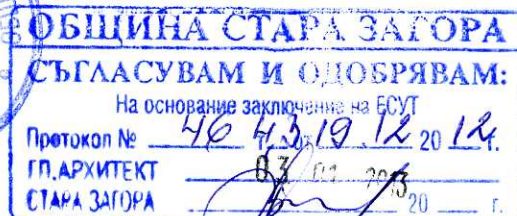 ОБЩИНА СТАРА ЗАГОРА
СЪГЛАСУВАМ И ОДОБРЯВАМ:
На основание заключение на ЕСУТ
Протокол № 46 19.12 2012 г.
ГЛ.АРХИТЕКТ 03
СТАРА ЗАГОРА 20 г.